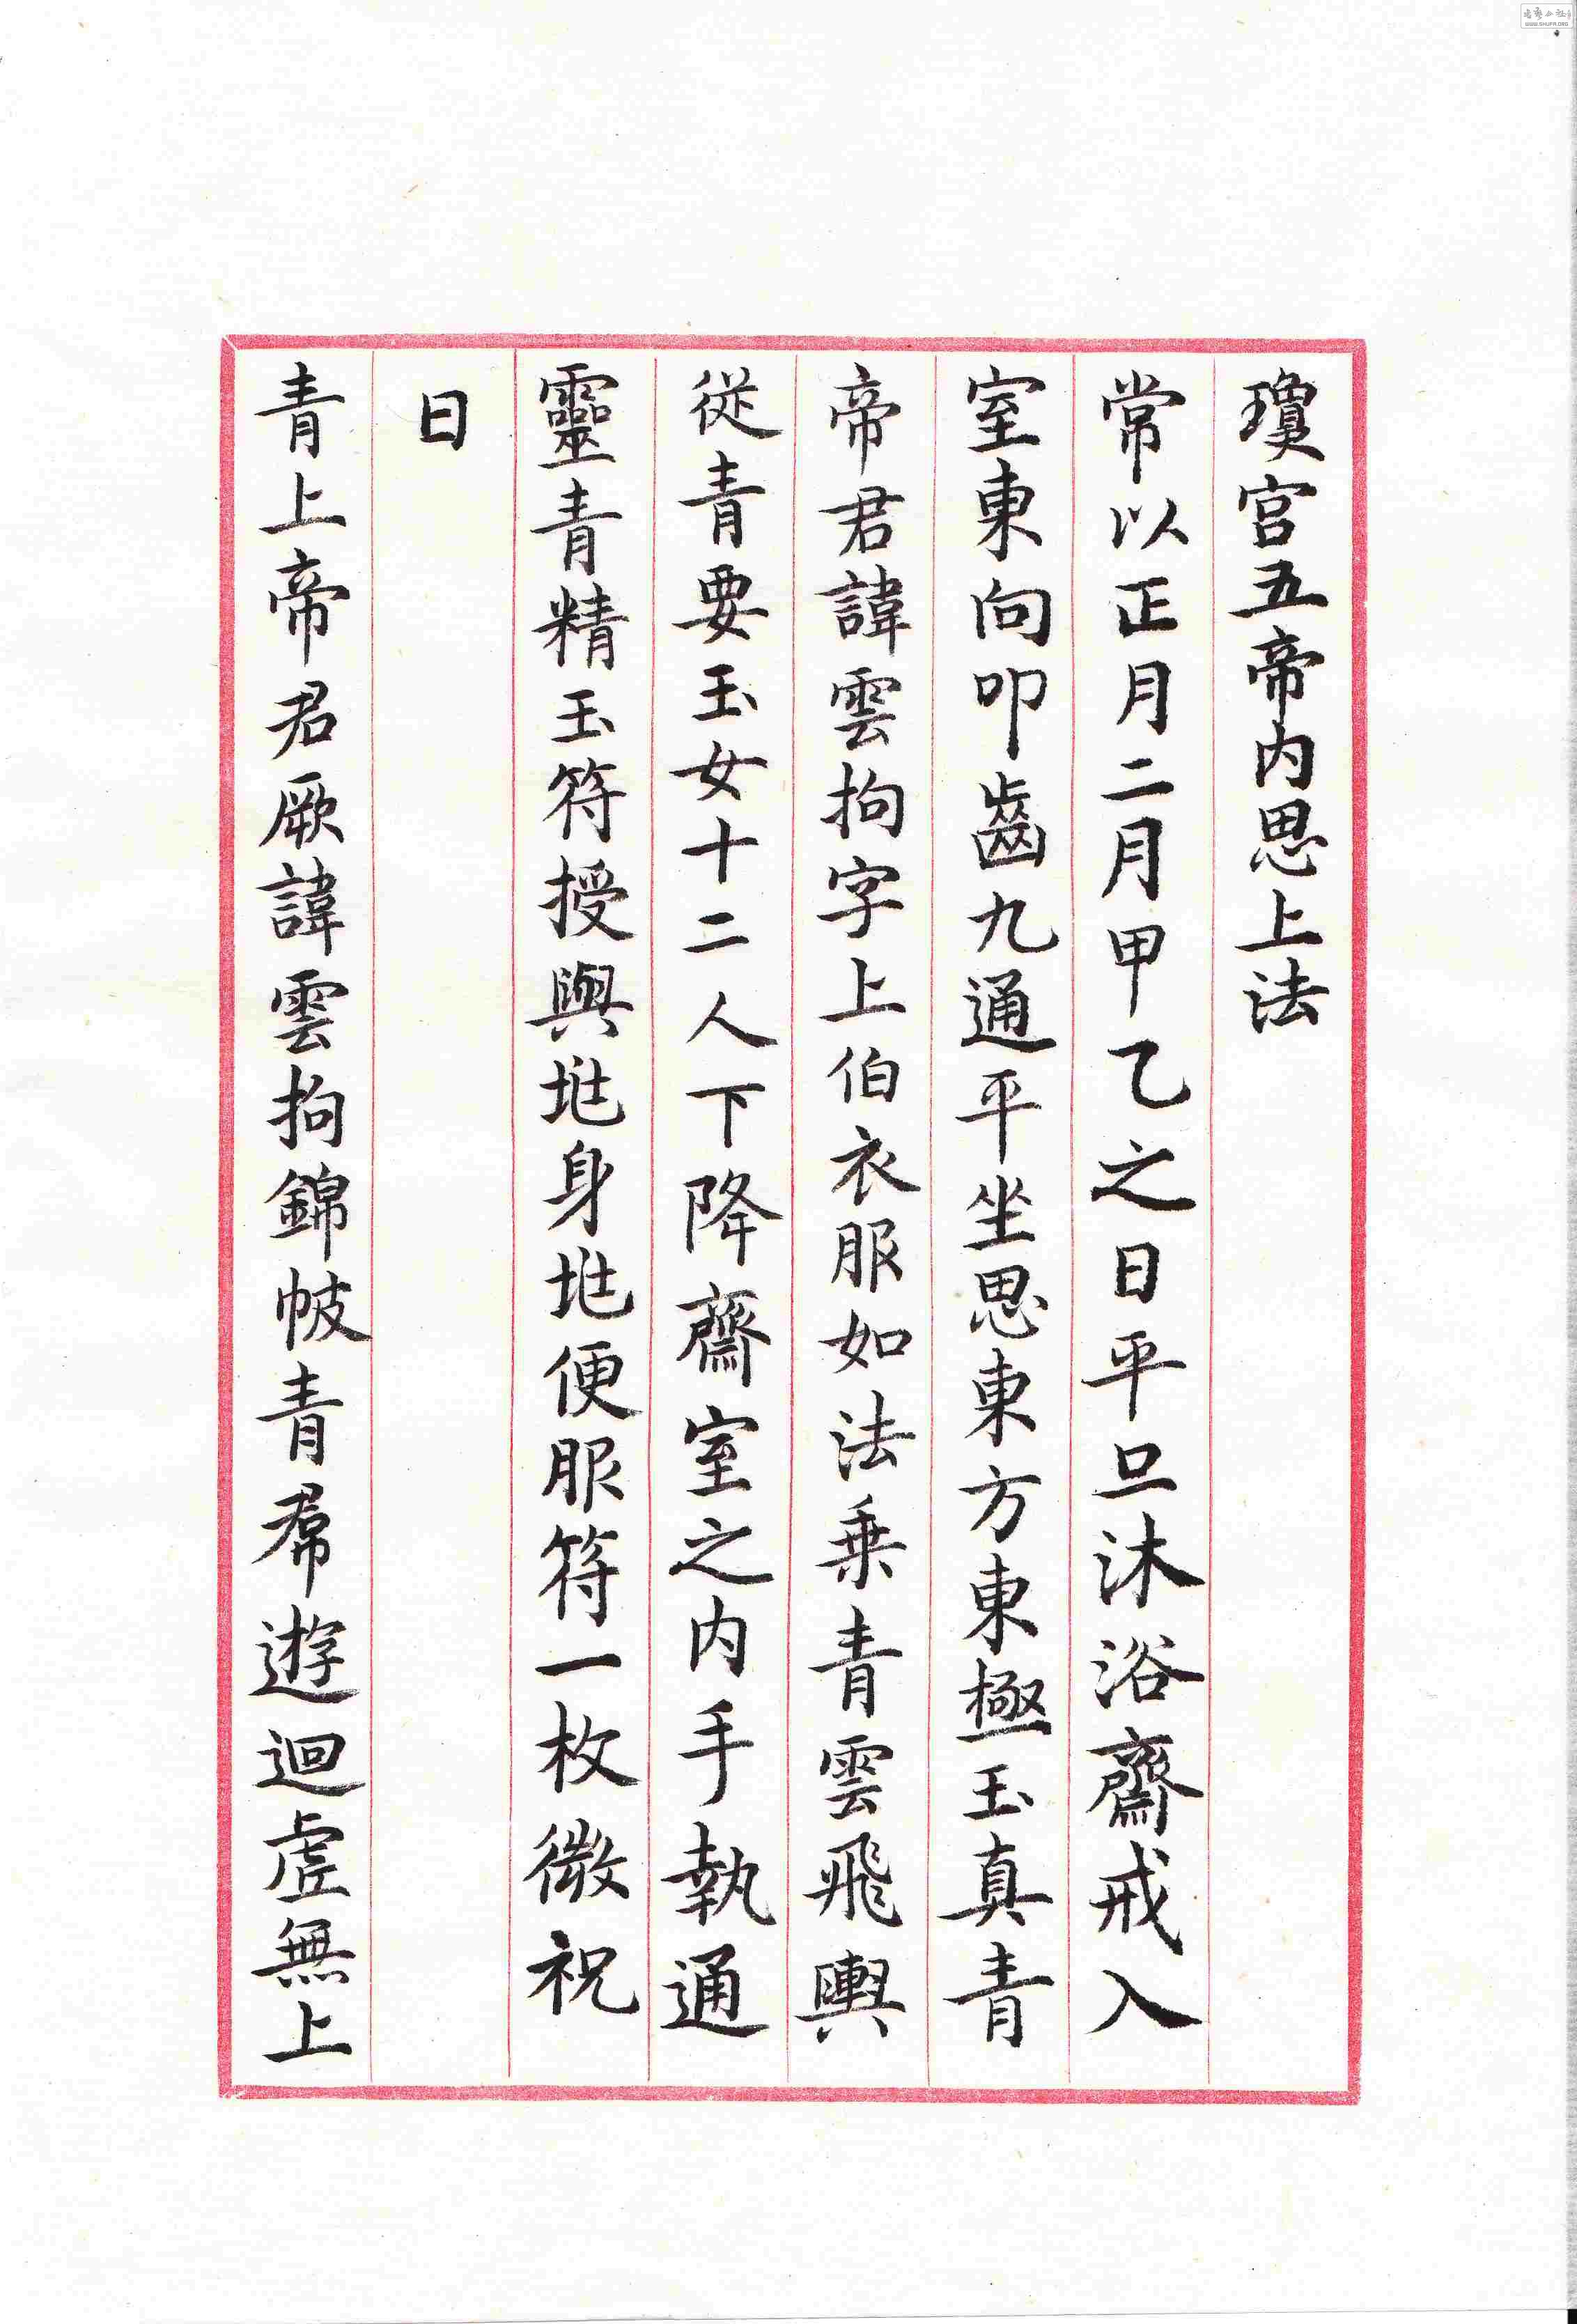 瓊宮五帝内思上法
常以正月二月甲乙之日平旦沐浴齋戒入
室東向叩齒九通平坐思東方東極玉真青
帝君諱雲拘字上伯衣服如法乗青雲飛輿
從青要玉女十二人下降齋室之内手執通
靈青精玉符授與兆身兆便服符一枚微祝
曰
青上帝君厥諱雲拘錦帔青帬遊迴虛無上
WWW.SHUFA.ORG